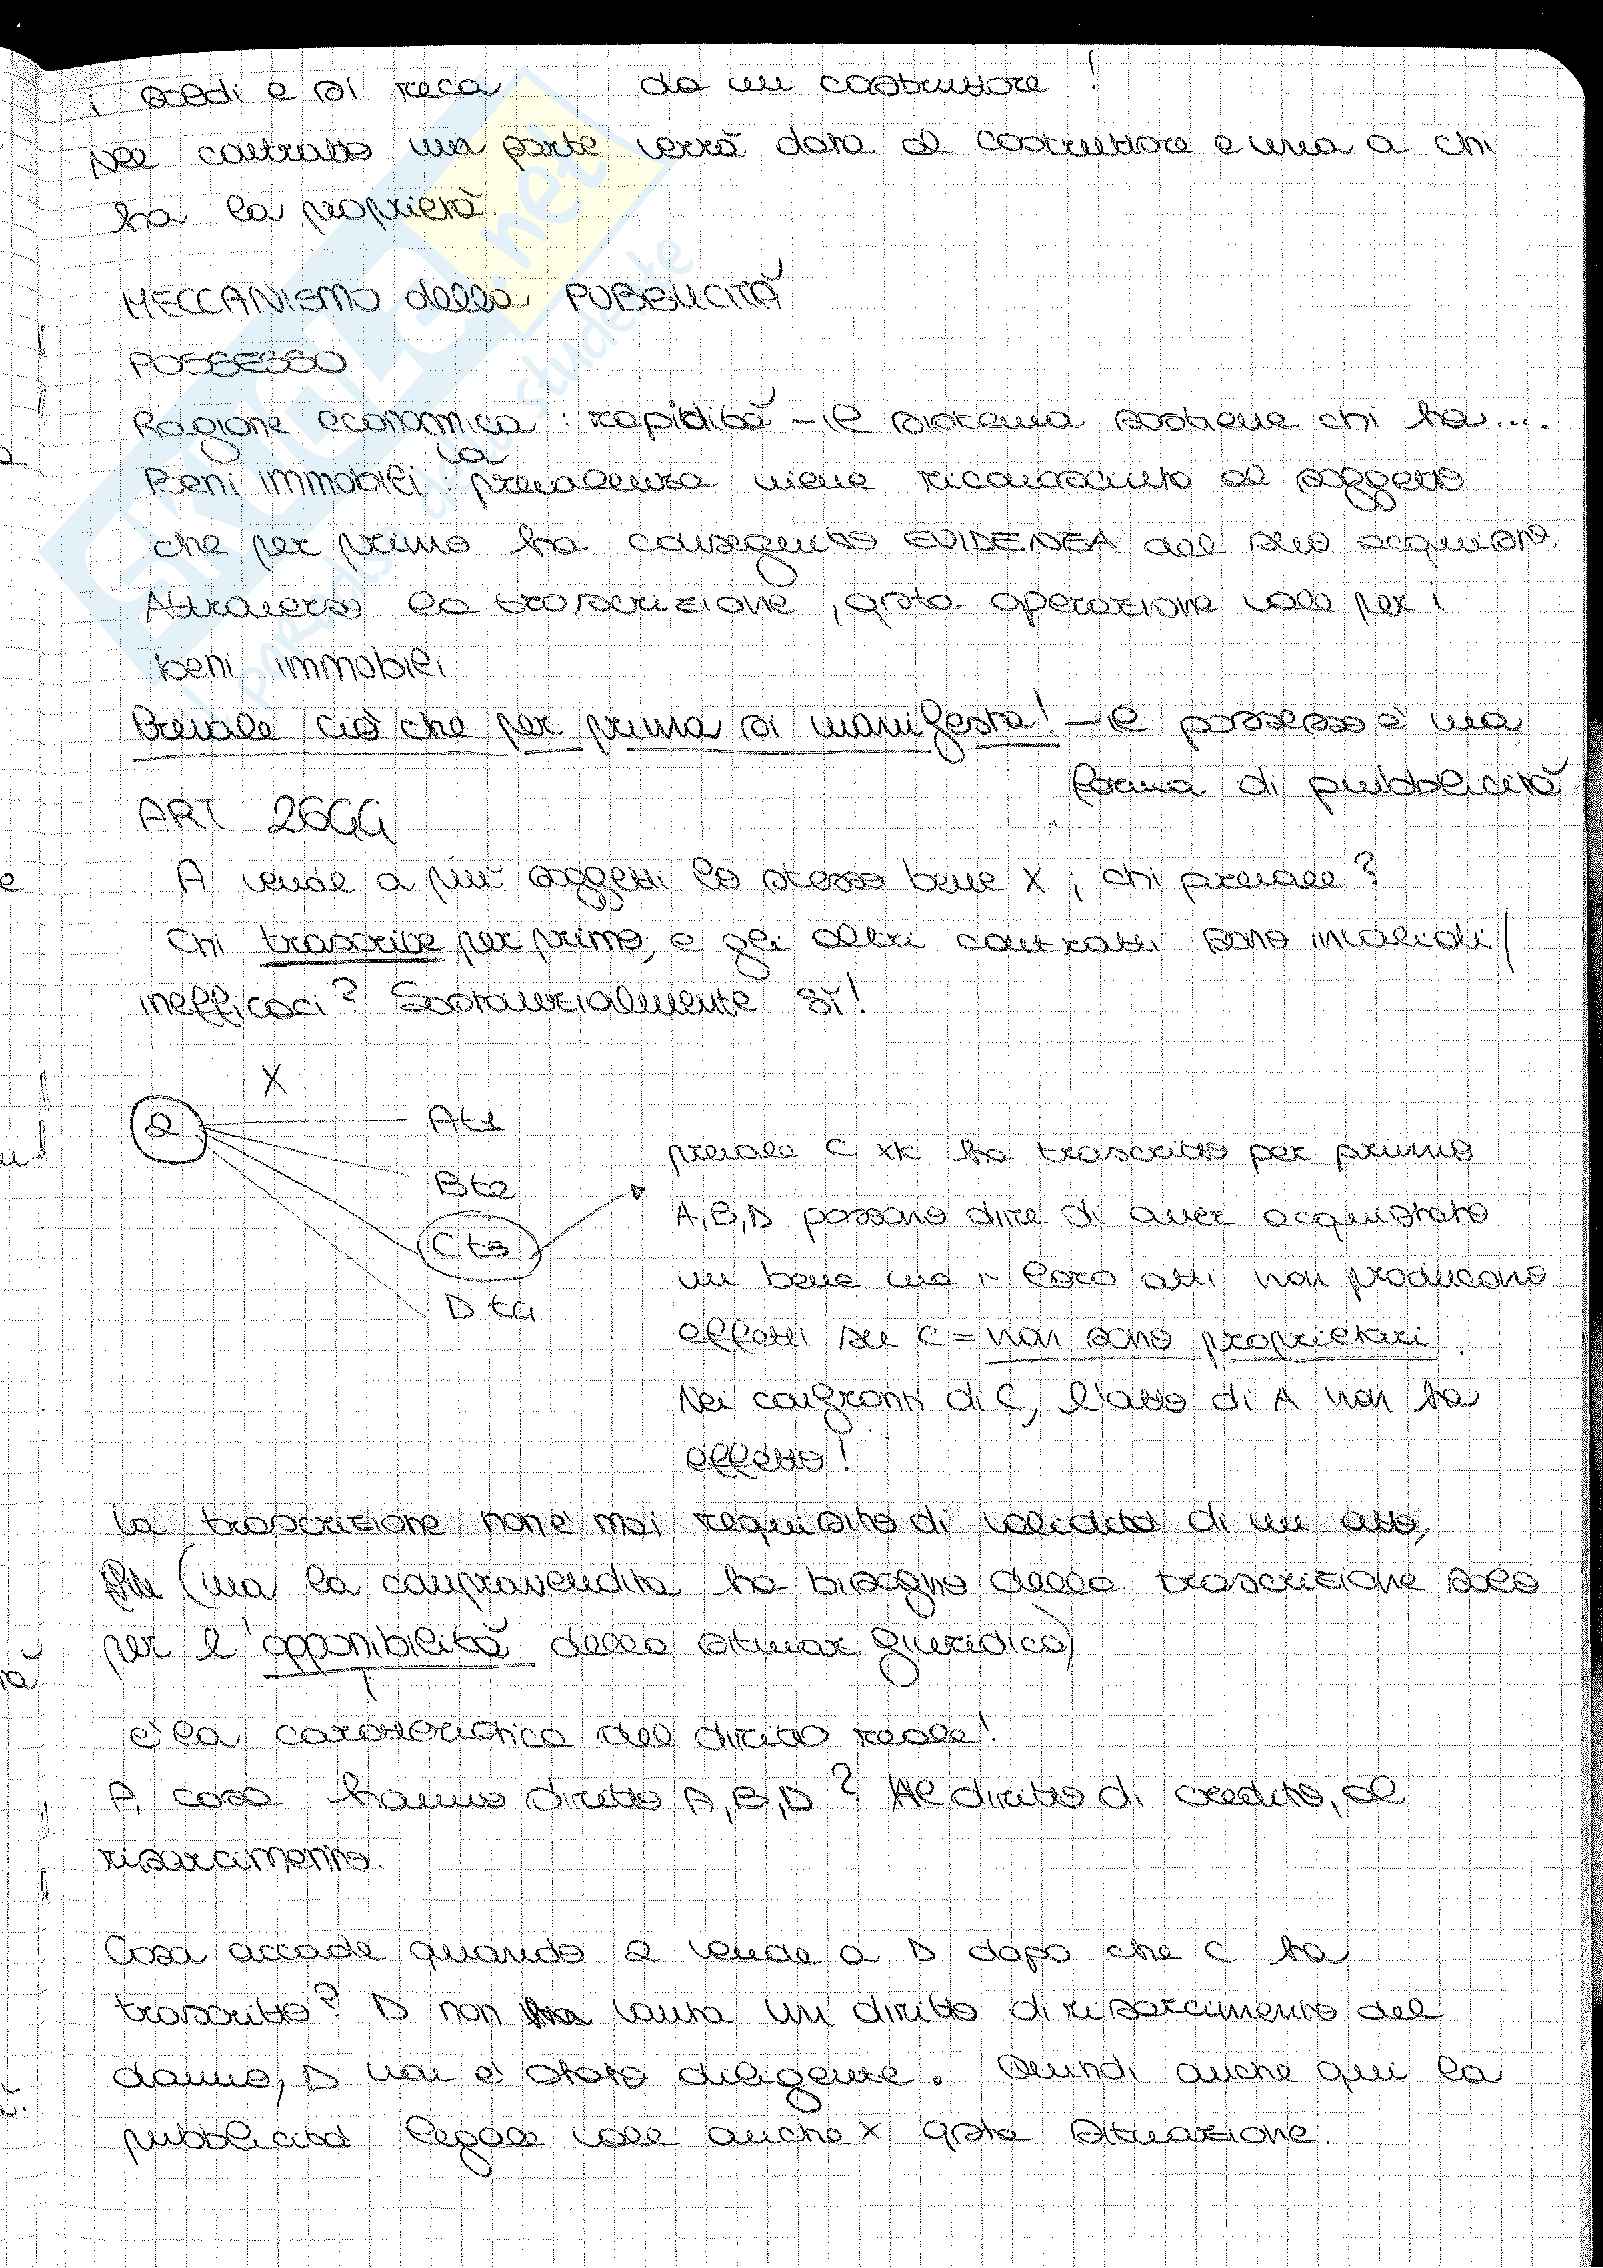 i soldi e si reca da un costruttore !
Nel contratto una parte verrà data al costruttore e una a chi
ha la proprietà.
MECCANISMO della PUBBLICITÀ
POSSESSO
Ragione economica : rapidità - il sistema sostiene chi ha....
Beni immobili : la prevalenza viene riconosciuta al soggetto
che per primo ha conseguito EVIDENZA del suo acquisto.
Attraverso la trascrizione, qsta operazione vale per i
beni immobili
Prevale ciò che per prima si manifesta! - il possesso è una
forma di pubblicità
ART 2644
A vende a più soggetti lo stesso bene X, chi prevale?
Chi trascrive per primo, e gli altri contratti sono invalidi/
inefficaci? Sostanzialmente sì!
X
Q
At1
Bt2
Ct3
Dt4
prevale C xk ha trascritto per primo
A,B,D possono dire di aver acquistato
un bene ma i loro atti non producono
effetti su C = non sono proprietari.
Nei confronti di C, l'atto di A non ha
effetto!
La trascrizione non è mai requisito di validità di un atto,
(ma la compravendita ha bisogno della trascrizione solo
per l'opponibilità della situaz giuridica)
è la caratteristica del diritto reale!
A cosa hanno diritto A,B,D? Al diritto di credito, al
risarcimento.
Cosa accade quando Q vende a D dopo che C ha
trascritto? D non vanta un diritto di risarcimento del
danno, D non è stato diligente. Quindi anche qui la
pubblicità legale vale anche x qsta situazione.